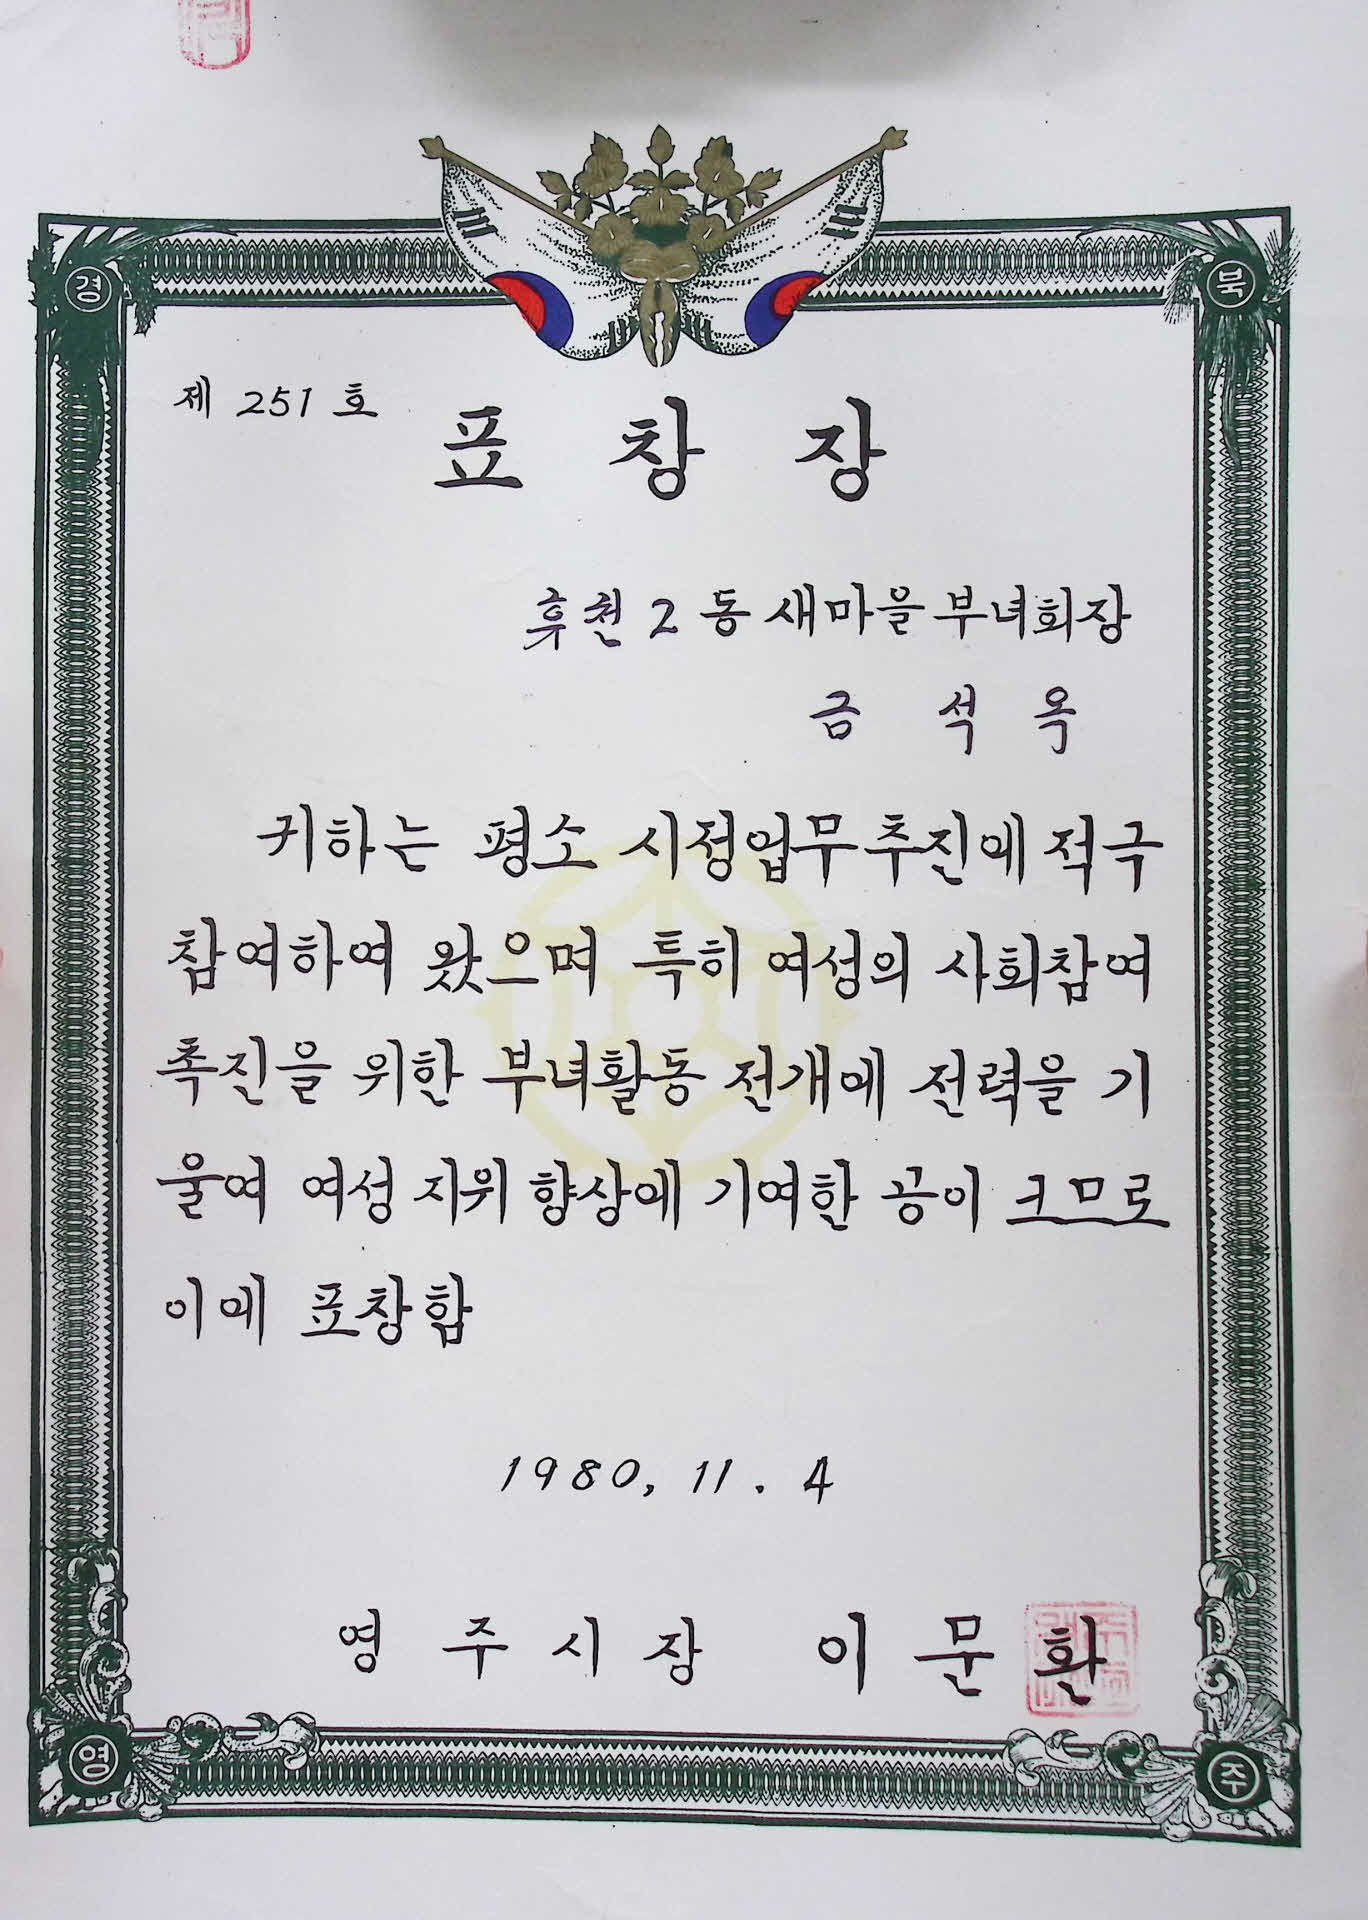 경 북
제 251 호
표 창 장
휴천 2 동 새마을 부녀회장
금 석 옥
귀하는 평소 시정업무추진에 적극
참여하여 왔으며 특히 여성의 사회참여
촉진을 위한 부녀활동 전개에 전력을 기
울여 여성 지위 향상에 기여한 공이 크므로
이에 표창함
1980, 11. 4
영 주 시 장 이 문 환
영 주